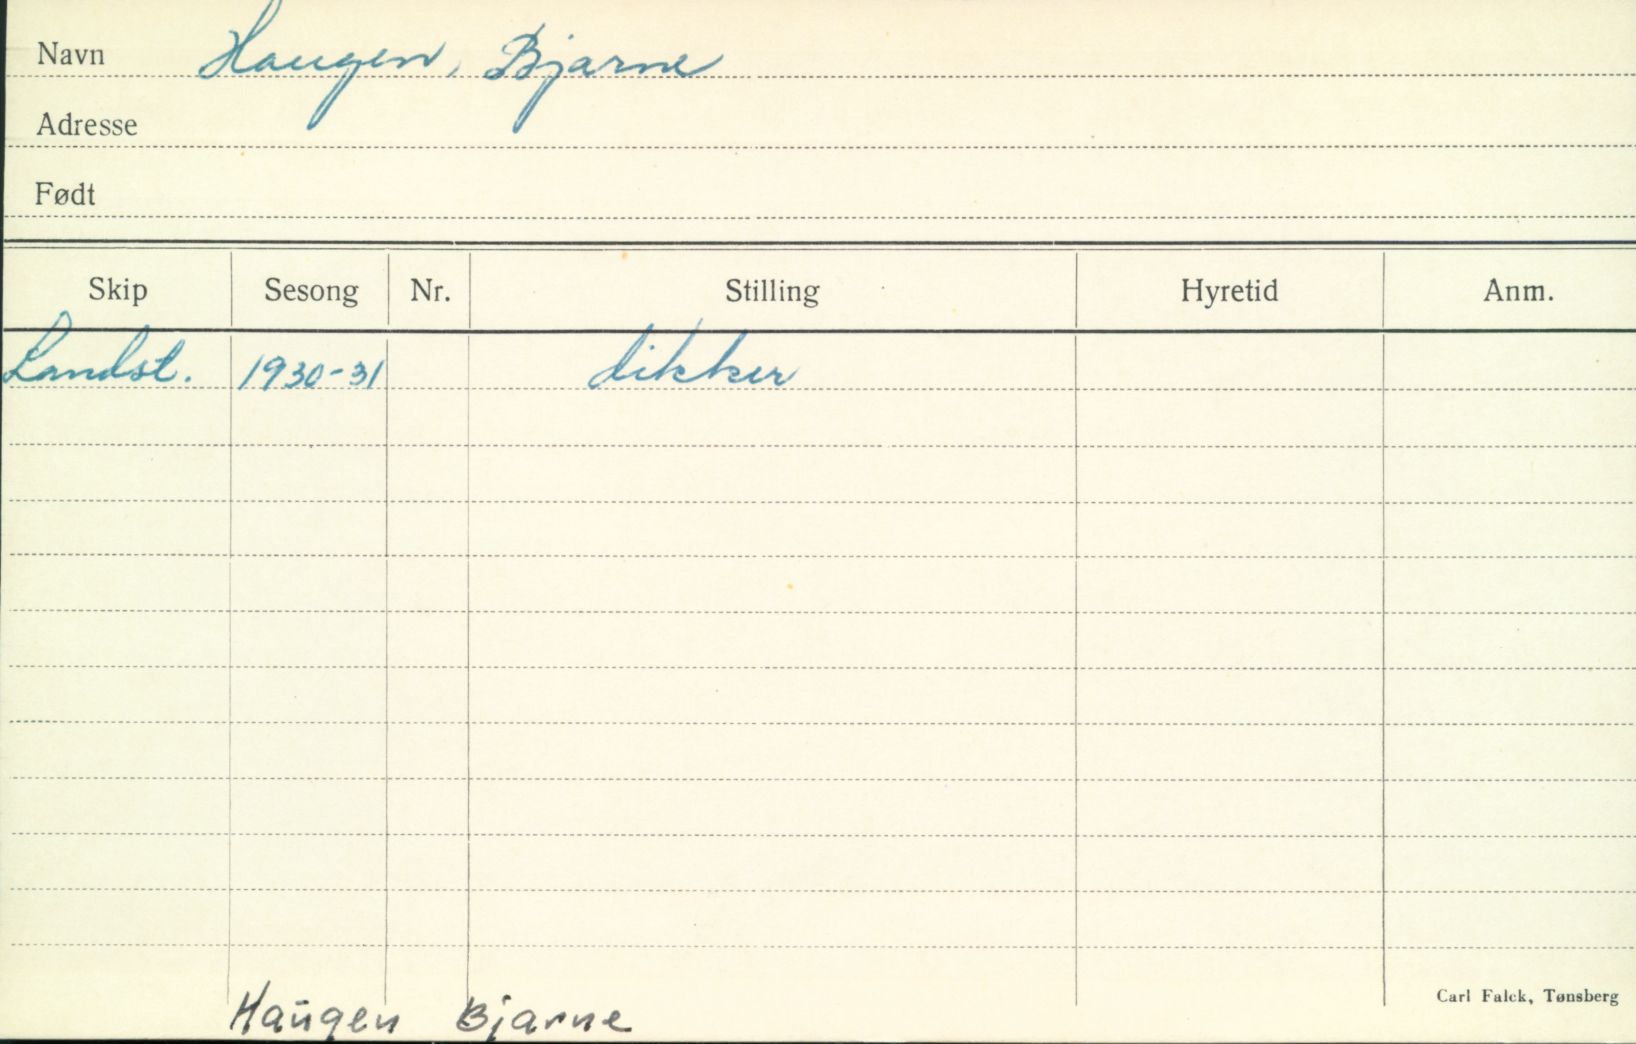 Navn Haugen, Bjarne
Adresse
Født
Skip Sesong Nr. Stilling Hyretid Anm.
Landst. 1930-31 dikker
Haugen Bjarne
Carl Falck, Tønsberg